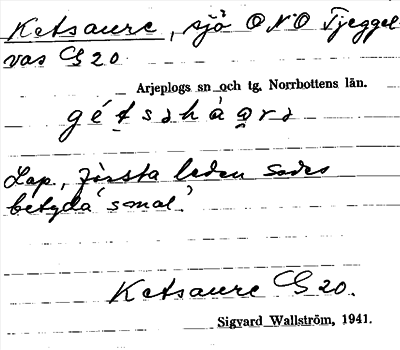 Ketsaure, sjö ONO Tjeggel
vas G 20
Arjeplogs sn och tg. Norrbottens län.
gé́t̯səhàa̯rə
Lap, första leden sades
betyda 'smal'.
Ketsaure G 20.
Sigvard Wallström, 1941.